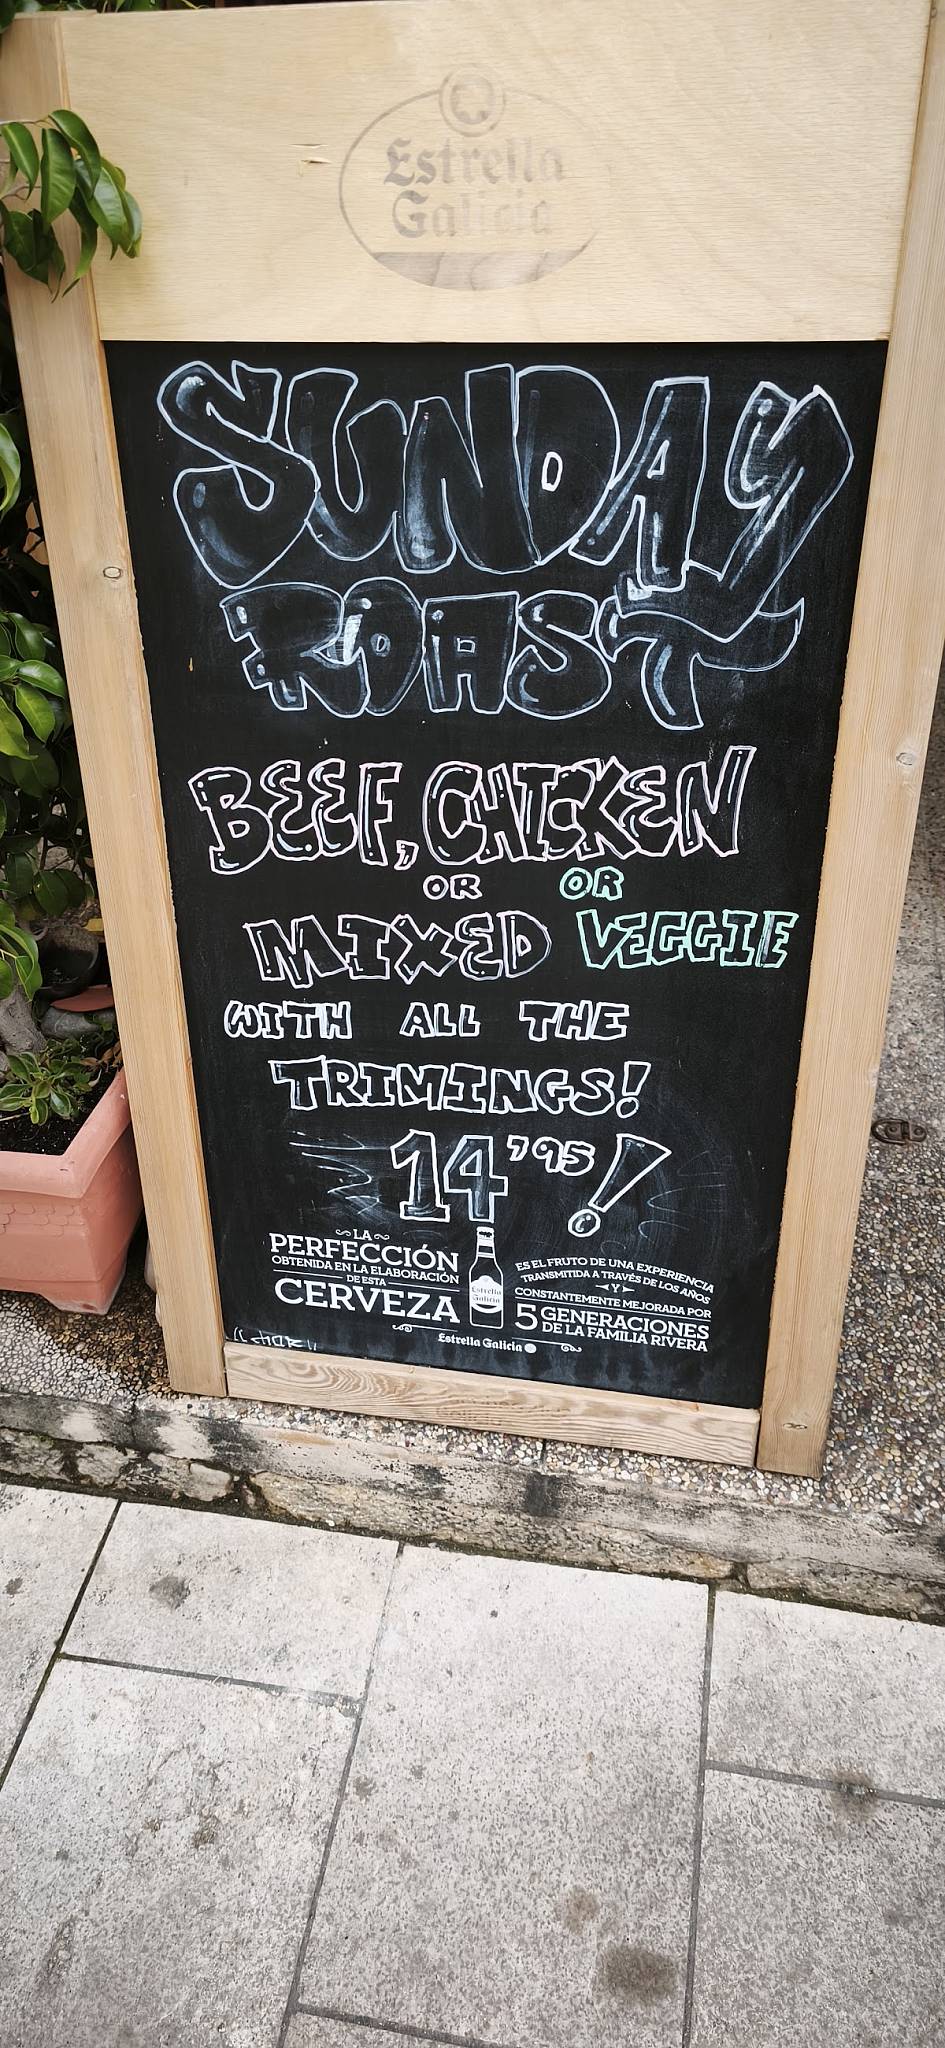 Estrella
Galicia
SUNDAY
ROAST
BEEF, CHICKEN
OR OR
MIXED VEGGIE
WITH ALL THE
TRIMINGS!
14'95!
LA
PERFECCIÓN
OBTENIDA EN LA ELABORACIÓN
DE ESTA
CERVEZA
Estrella
Galicia
ES EL FRUTO DE UNA EXPERIENCIA
TRANSMITIDA A TRAVÉS DE LOS AÑOS
Y
CONSTANTEMENTE MEJORADA POR
5 GENERACIONES
DE LA FAMILIA RIVERA
Estrella Galicia